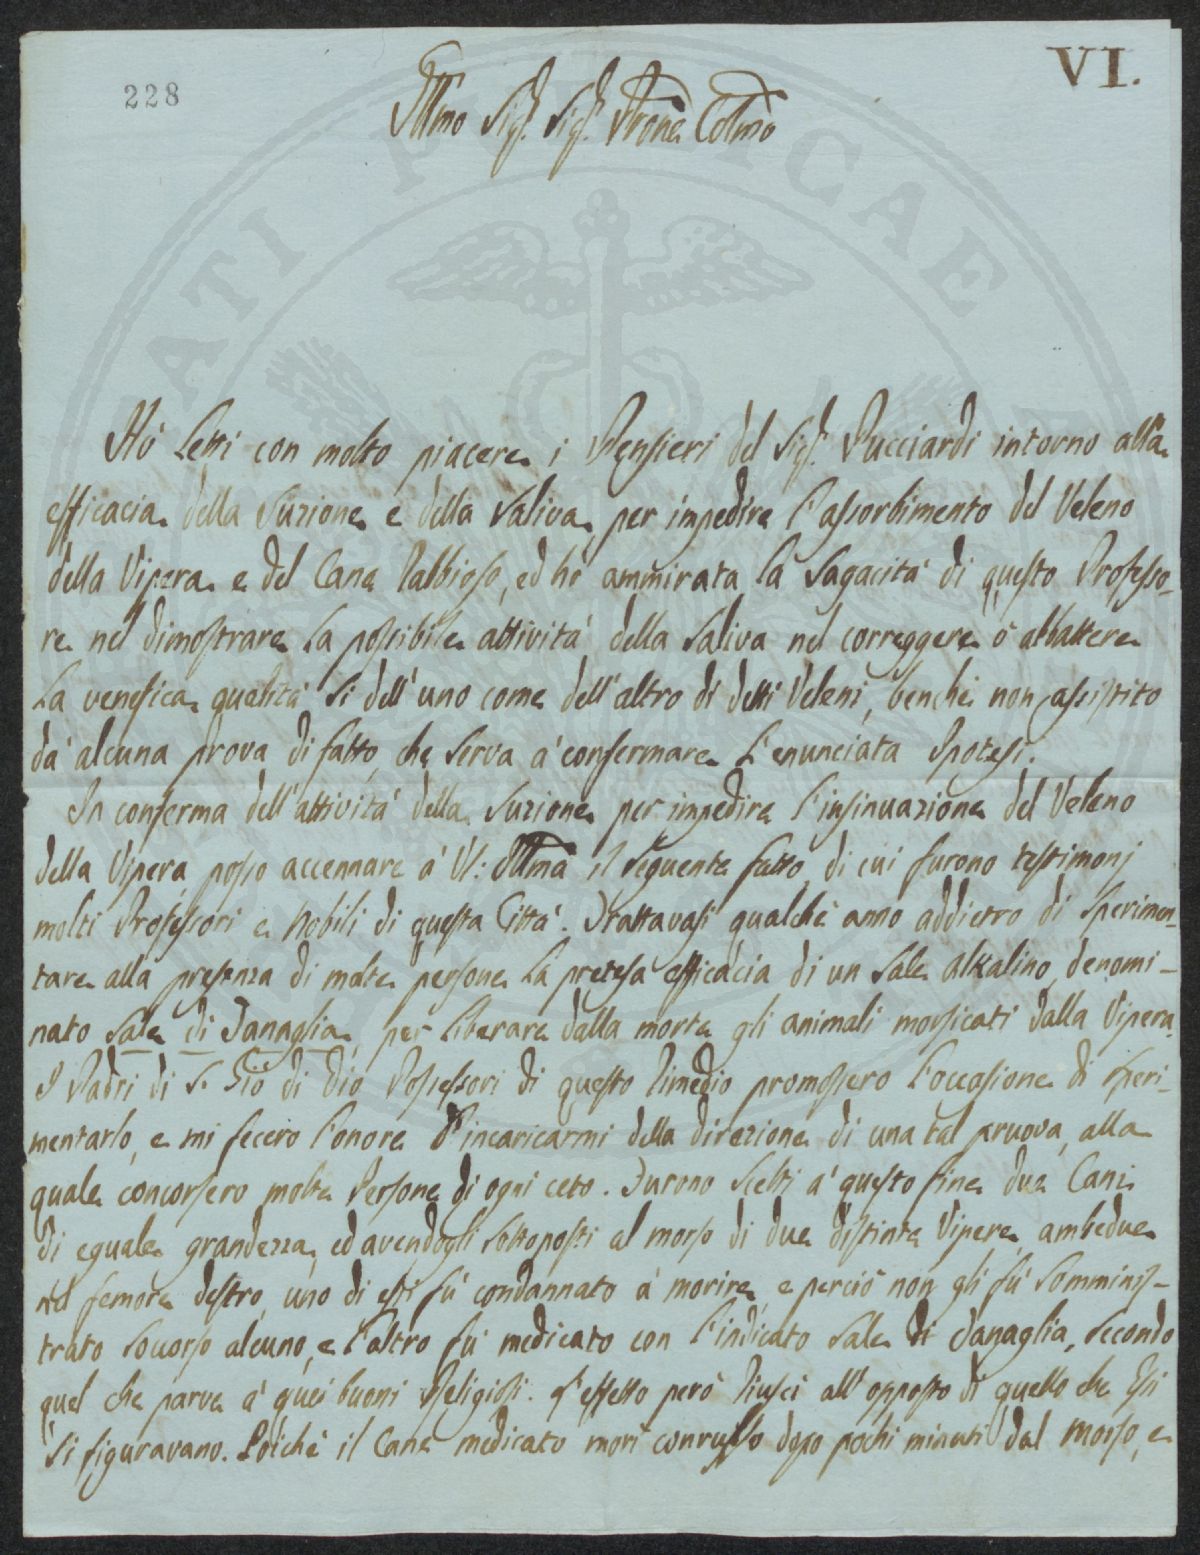 228
VI.
Illmo Sig.r Sig.r Prone Colmo
Hò Letti con molto piacere i Pensieri del Sig.r Pucciardi intorno alla
efficacia della Suzione e della Saliva per impedire l'assorbimento del Veleno
della Vipera e del Cane Rabbioso, ed hò ammirata la Sagacità di questo Professo-
re nel dimostrare La possibile attività della Saliva nel correggere ò abbattere
La venefica qualità Sì dell'uno come dell'altro di detti Veleni, benchè non assistito
dà alcuna prova di fatto, che Serva à confermare L'enunciata Ipotesi.
In conferma dell'attività della Suzione per impedire l'insinuazione del Veleno
della Vipera posso accennare à VS: Illma il Seguente fatto di cui furono testimonj
molti Professori e Nobili di questa Città. Trattavasi qualchè anno addietro di Sperimen-
tare alla presenza di molte persone La pretesa efficacia di un Sale Alkalino, denomi-
nato Sale di Tanaglia, per Liberare dalla morte gli animali morsicati dalla Vipera.
I Padri di S. Giò di Dio Possessori di questo Rimedio promossero l'occasione di Speri-
mentarlo, e mi fecero l'onore d'incaricarmi della direzione di una tal pruova, alla
quale concorsero molte Persone di ogni ceto. Furono Scelti à questo fine due Cani
di eguale grandezza, ed avendogli Sottoposti al morso di due distinte Vipere, ambedue
nel femore destro, uno di essi fù condannato à morire, e perciò non gli fù Somminis-
trato Soccorso alcuno, e l'altro fù medicato con l'indicato Sale di Tanaglia, Secondo
quel che parve à quei buoni Religiosi. L'effetto però Riuscì all'opposto di quello che Essi
Si figuravano. Poichè il Cane medicato morì convulso dopo pochi minuti dal Morso, e